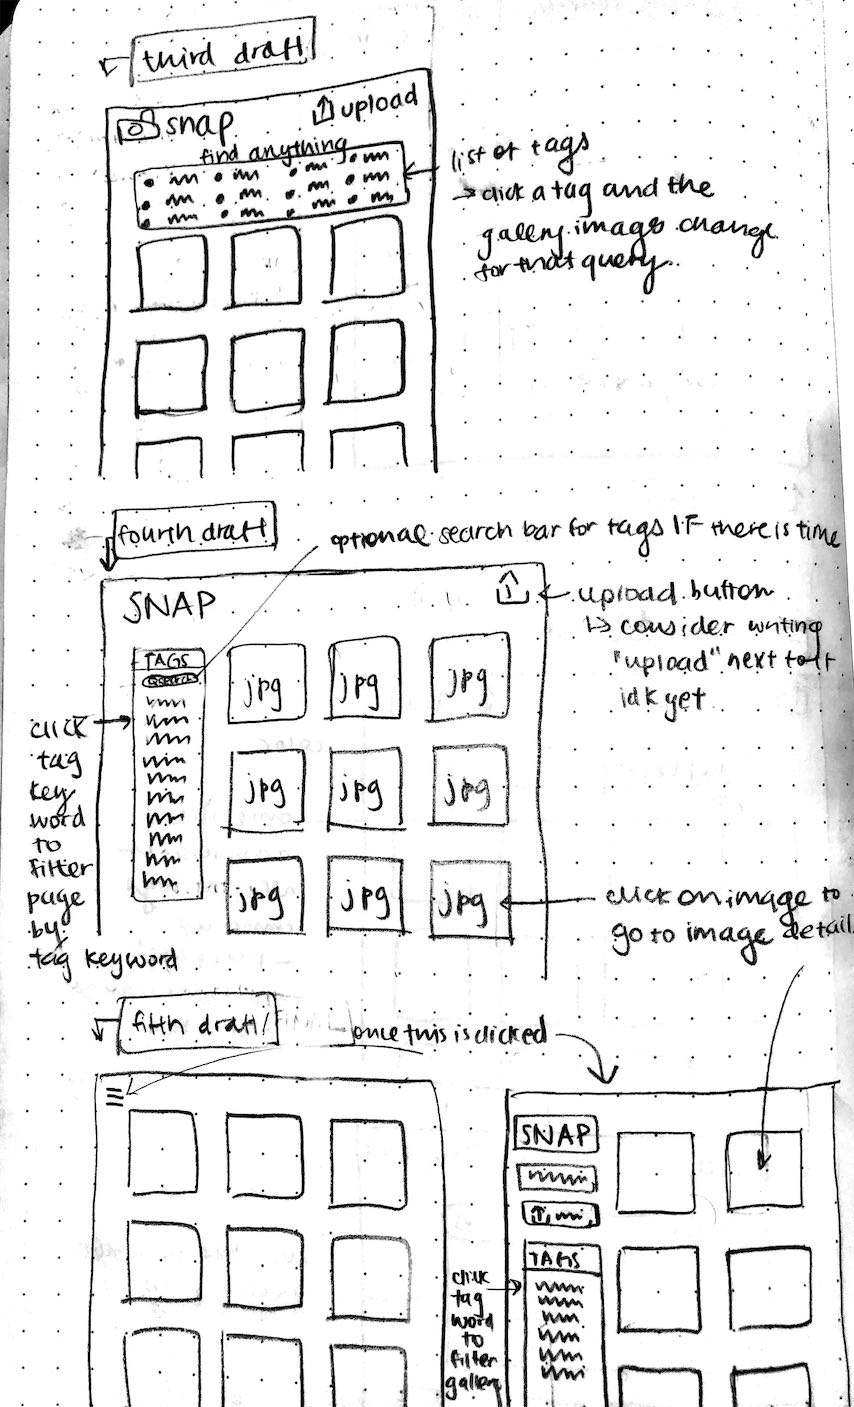 third draft
snap
upload
find anything
list of tags
→ click a tag and the
gallery images change
for that query.
fourth draft
optional search bar for tags IF there is time
SNAP
upload button
↳ consider writing
"upload" next to it
idk yet
TAGS
search
jpg jpg jpg
jpg jpg jpg
jpg jpg jpg
click
tag
key
word
to
filter
page
by
tag keyword
click on image to
go to image detail
fifth draft/
once this is clicked
SNAP
TAGS
click
tag
word
to
filter
gallery